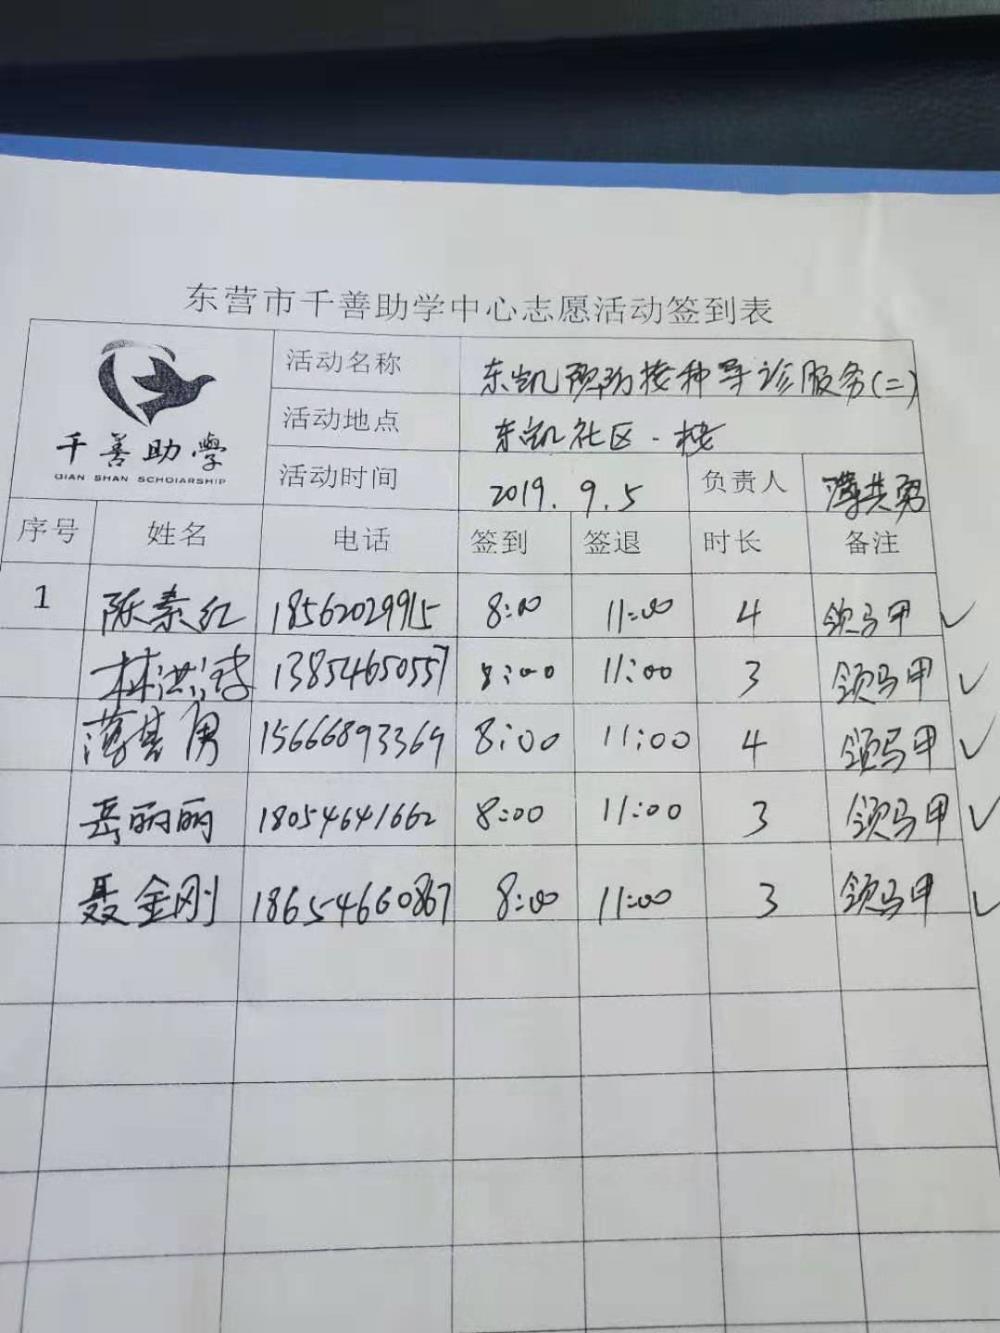 东营市千善助学中心志愿活动签到表
千善助學
QIAN SHAN SCHOIARSHIP
活动名称 东凯预防接种导诊服务(二)
活动地点 东凯社区
活动时间 2019.9.5 负责人 薄其勇
序号 姓名 电话 签到 签退 时长 备注
1 陈素红 18562029915 8:00 11:00 4 领马甲 ✓
林洪 13854650557 8:00 11:00 3 领马甲 ✓
薄其勇 15666893369 8:00 11:00 4 领马甲 ✓
岳丽丽 18054641662 8:00 11:00 3 领马甲 ✓
聂金刚 18654660867 8:00 11:00 3 领马甲 ✓